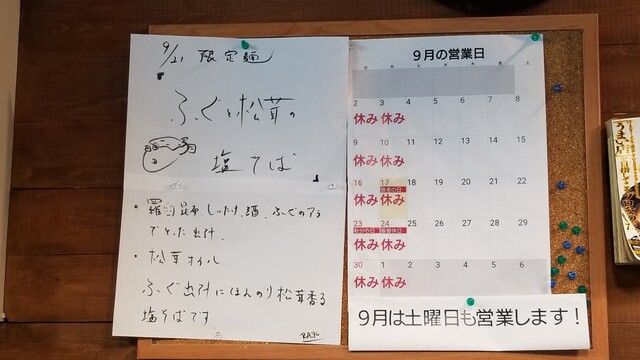 9/21 限定麺
ふぐと松茸の
塩そば
・羅臼昆布、しいたけ、酒、ふぐのアラ
でとった出汁.
・松茸オイル
ふぐ出汁にほんのり松茸香る
塩そばです
9月の営業日
2 3 4 5 6 7 8
休み 休み
9 10 11 12 13 14 15
休み 休み
16 17 18 19 20 21 22
敬老の日
休み 休み
23 24 25 26 27 28 29
秋分の日 振替休日
休み 休み
30 1 2 3 4 5 6
休み 休み
9月は土曜日も営業します!